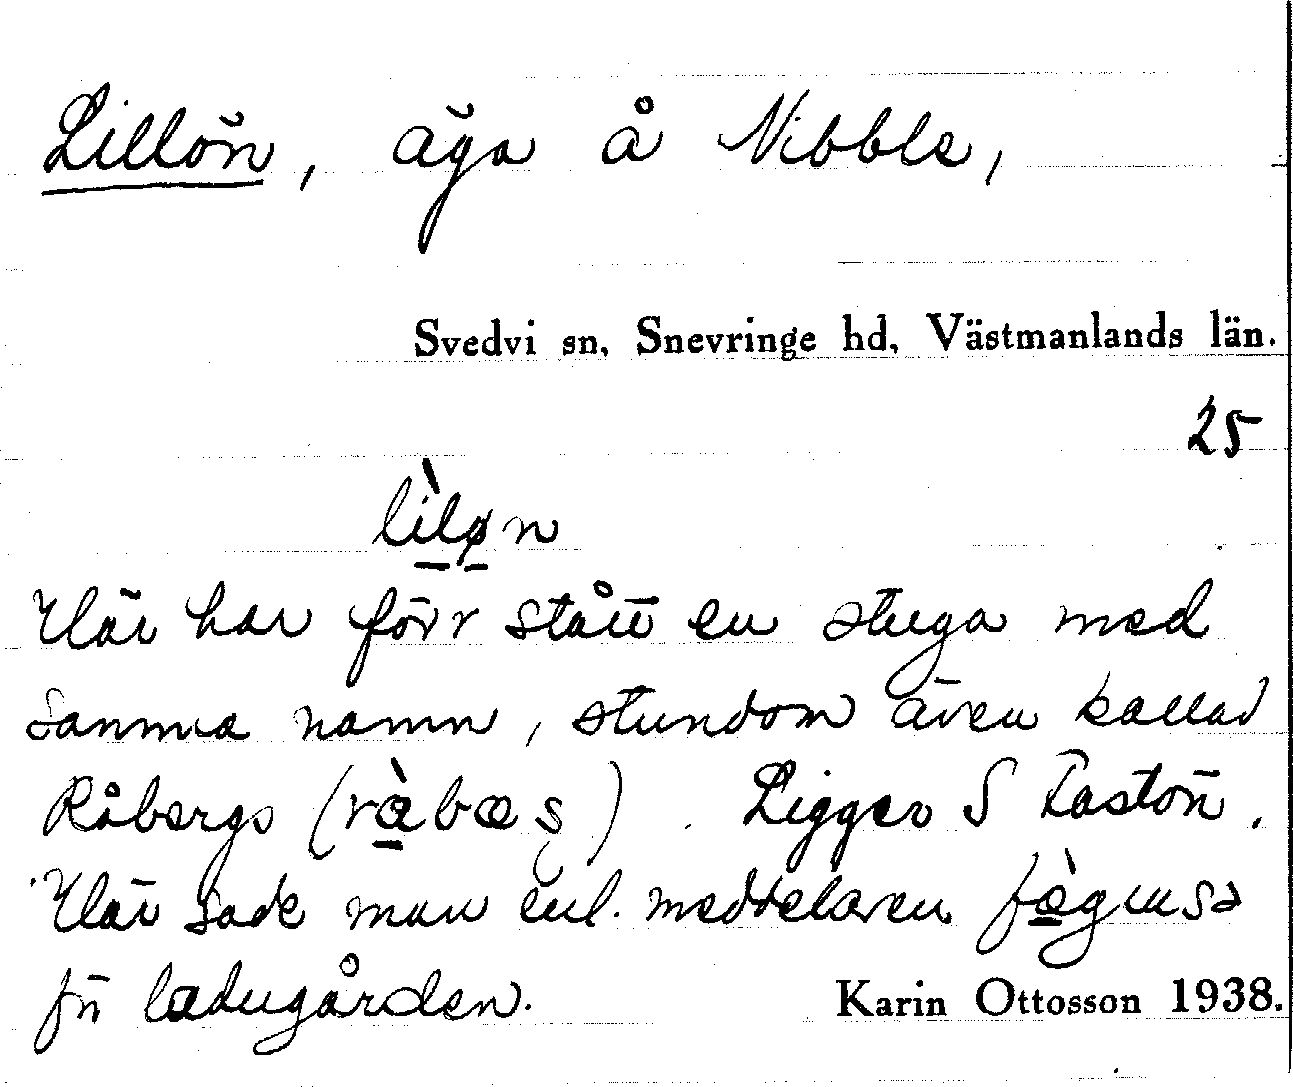 Lillön, äga å Nibble,
Svedvi sn, Snevringe hd, Västmanlands län.
25
lìløn
Här har förr stått en stuga med
samma namn, stundom även kallad
Råbergs ( ). Ligger S Fastön.
Här sade man enl. meddelaren
för ladugården.
Karin Ottosson 1938.